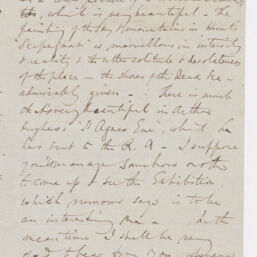 this, which is very beautiful – the
painting of the sky & mountains in Hunt's
"Scapegoat" is marvellous in intensity
& reality & the utter solitude & desolateness
of the place – the shores of the Dead Sea –
admirably given – : There is much
that is very beautiful in Arthur
Hughes's "St Agnes Eve", which he
has sent to the R. A – I suppose
you'll manage somehow or other
to come up & see the Exhibition,
which rumour says is to be
an interesting one – In the
mean time I shall be very
glad to hear from you